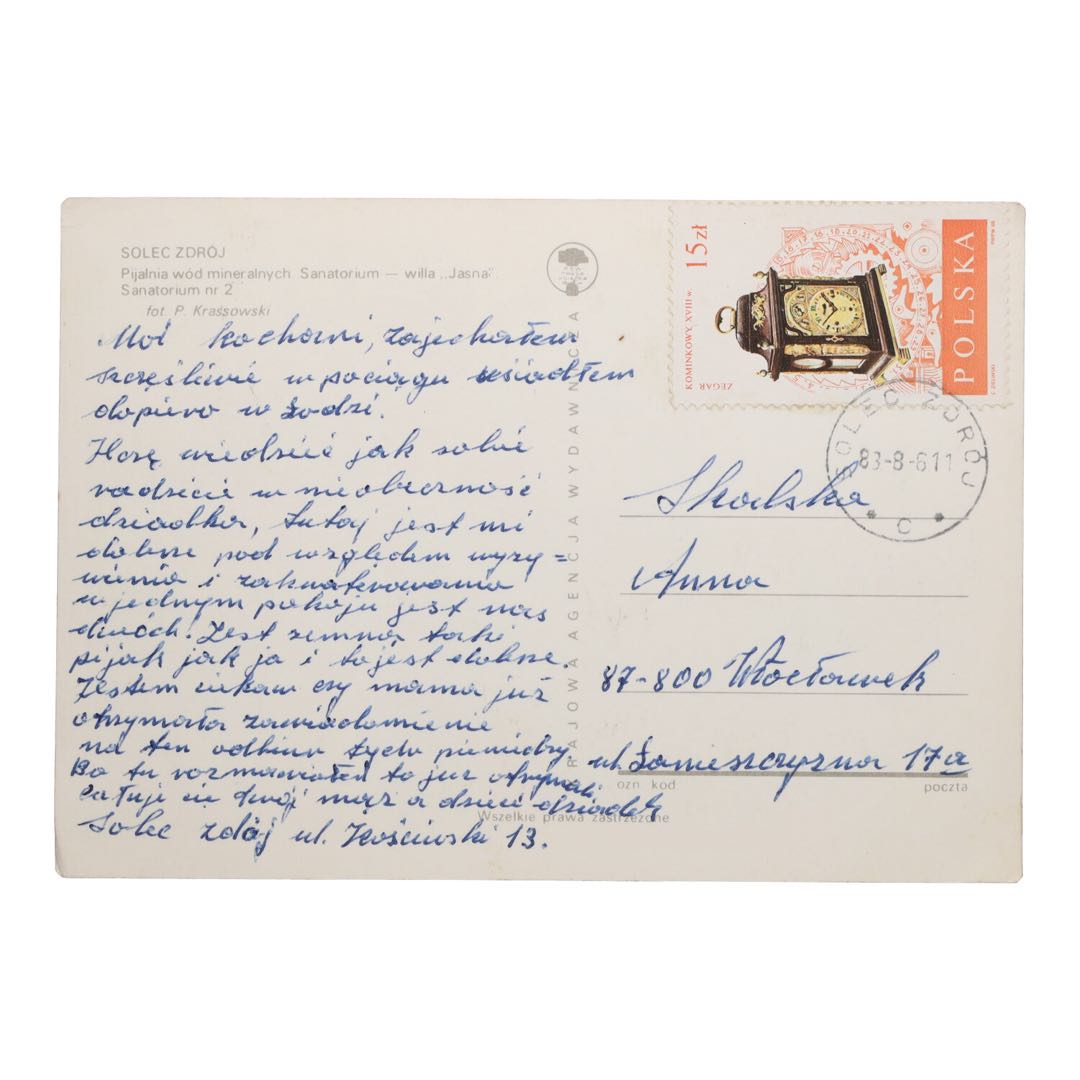 SOLEC ZDRÓJ
Pijalnia wód mineralnych. Sanatorium — willa „Jasna"
Sanatorium nr 2
fot. P. Krassowski
Moi kochani, zajechałem
szczęśliwie w pociągu usiadłem
dopiero w Łodzi.
Hcę wiedzieć jak sobie
radzicie w nieobecność
dziadka, tutaj jest mi
dobrze pod względem wyży=
wienia i zakwaterowania
w jednym pokoju jest nas
dwóch. Jest zemną taki
pijak jak ja i to jest dobrze.
Jestem ciekaw czy mama już
otrzymała zawiadomienie
na ten odbiur tych pieniędzy
Bo tu rozmawiałem to już otrzymali
całuje cie twój mąż a dzieci dziadek
Solec zdój ul. 13.
KRAJOWA AGENCJA WYDAWNICZA
Wszelkie prawa zastrzeżone
15 zł
ZEGAR
KOMINKOWY XVIII w.
POLSKA
SOLEC ZDRÓJ
83-8-611
C
Skalska
Anna
87-800 Włocławek
ul. 17a
ozn kod
poczta